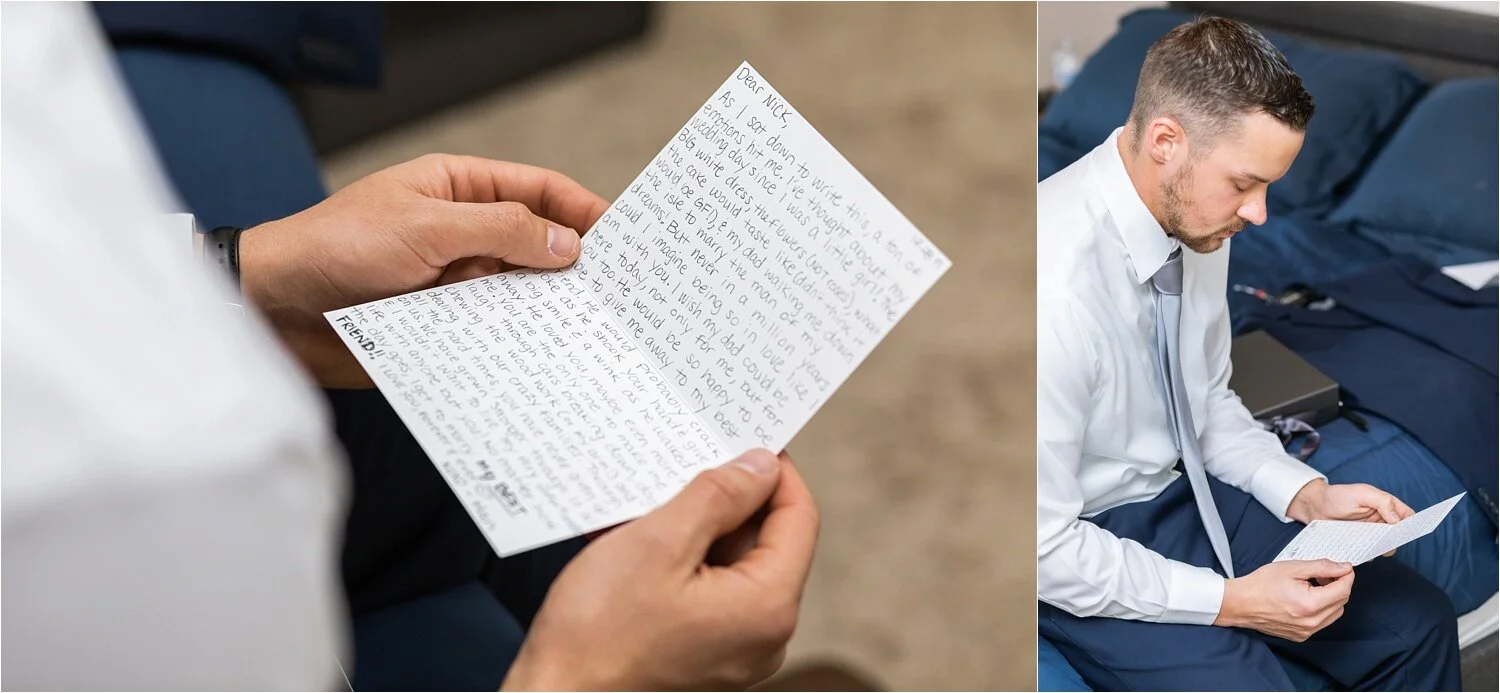 Dear Nick,
As I sat down to write this, a ton of
emotions hit me. I've thought about my
wedding day since I was a little girl. The
BIG white dress, the flowers (not roses), what
the cake would taste like (didn't think it
would be GF!), & my dad walking me down
the isle to marry the man of my
dreams! But never in a million years
could I imagine being so in love like I
am with you. I wish my dad could be
here today, not only for me, but for
you too. He would be so happy to be
able to give me away to my best
friend! He would probably crack
a joke as he shook your hand & give
a big smile & a wink as he walked
away. He loved you, maybe even more
me. You are the only one to make me
laugh through cars breaking down,
chewing the wood work
dealing with our crazy families, and
all the hard times
on us. We have grown
& I would never want to
life with anyone but you. No matter
the day
FRIEND!! I love you forever
my BEST